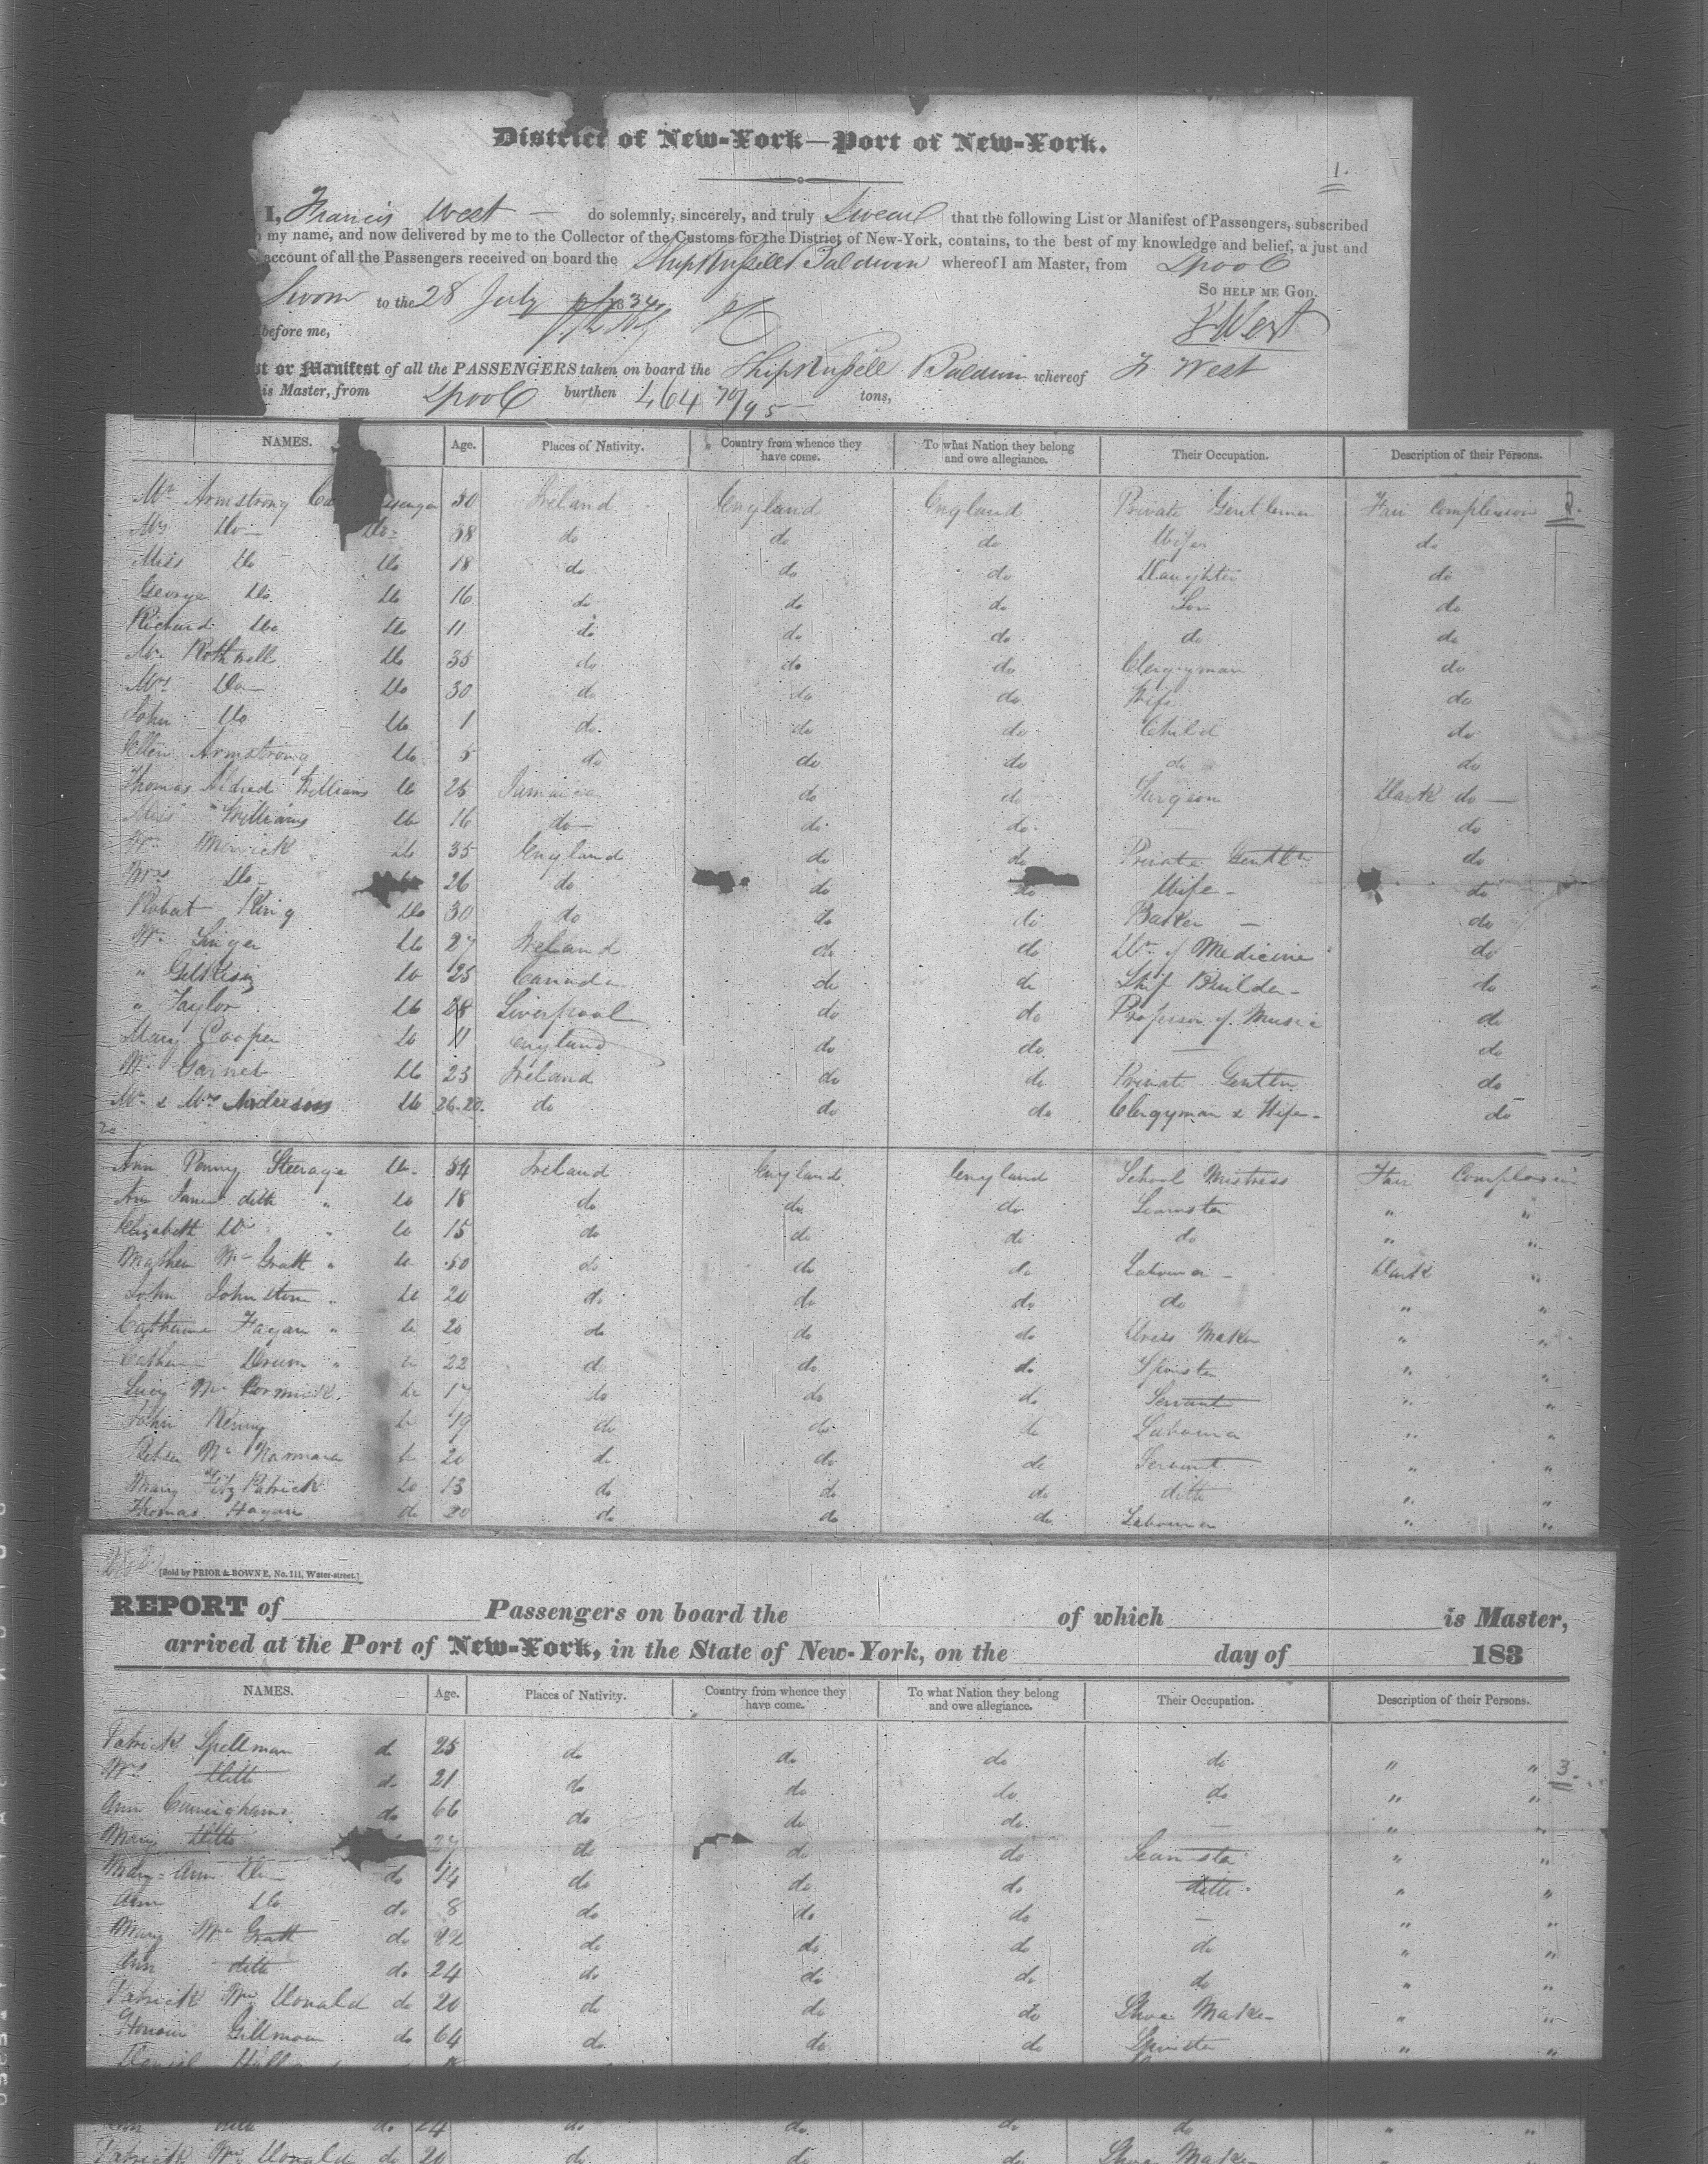 District of New-York—Port of New-York.
1.
I, Francis West — do solemnly, sincerely, and truly Swear that the following List or Manifest of Passengers, subscribed
my name, and now delivered by me to the Collector of the Customs for the District of New-York, contains, to the best of my knowledge and belief, a just and
account of all the Passengers received on board the Ship Russell Baldwin whereof I am Master, from Lpool
So help me God.
Sworn to the 28 July 1834
F West
before me,
st or Manifest of all the PASSENGERS taken on board the Ship Russell Baldwin whereof F West
is Master, from Lpool burthen 464 70/95 — tons,
NAMES. Age. Places of Nativity. Country from whence they have come. To what Nation they belong and owe allegiance. Their Occupation. Description of their Persons.
Mr Armstrong 30 Ireland England England Private Gentleman Fair Complexion 2.
Mrs Do — Do 38 do do do Wife do
Miss Do Do 18 do do do Daughter do
George Do Do 16 do do do Son do
Richard Do Do 11 do do do do do
Mr Rothwell Do 35 do do do Clergyman do
Mrs Do — Do 30 do do do Wife do
John Do Do 1 do do do Child do
Ellen Armstrong Do 5 do do do do do
Thomas Aldred Williams Do 25 Jamaica do do Surgeon Dark do —
Miss Williams Do 16 do do do do
Mr Merrick Do 35 England do do Private Gentln do
Mrs Do — 26 do do do Wife — do
Robert King Do 30 do do do Baker — do
Mr Singer Do 27 Ireland do do Dr. of Medicine do
" Do 25 Canada do do Ship Builder — do
" Taylor Do 28 Liverpool do do Professor of Music do
Mary Cooper Do 11 England do do — do
Mr Garnet Do 23 Ireland do do Private Gentln do
Mr & Mrs Anderson Do 26-20. do do do Clergyman & Wife — do
Ann Penny Steerage Do 34 Ireland England England School Mistress Fair Complexion
Ann ditto " Do 18 do do do Seamster " "
Elizabeth Do " Do 15 do do do do " "
Mathew Mc Gratt " Do 50 do do do Labourer — Dark "
John Johnston " Do 20 do do do do " "
Catherine Fagan " Do 20 do do do Dress Maker " "
Catherine Drum " Do 22 do do do Spinster " "
Lucy Mc Cormick Do 17 do do do Servant " "
John Kenny Do 19 do do do Labourer " "
Mc Namara Do 20 do do do Servant " "
Mary Fitz Patrick Do 13 do do do ditto " "
Thomas Hagan do 20 do do do Labourer " "
[Sold by PRIOR & BOWNE, No. 111, Water-street.]
REPORT of Passengers on board the of which is Master,
arrived at the Port of New-York, in the State of New-York, on the day of 183
NAMES. Age. Places of Nativity. Country from whence they have come. To what Nation they belong and owe allegiance. Their Occupation. Description of their Persons.
Patrick Spellman do 25 do do do do " " 3.
Mrs Ditto do 21 do do do do " "
Ann Cuningham do 66 do do do — " "
Mary Ditto do do do Seamster " "
Mary-Ann Do — do 14 do do do ditto " "
Ann Do do 8 do do do — " "
Mary Mc Gratt do 22 do do do do " "
Ann ditto do 24 do do do do " "
Patrick Mc Donald do 20 do do do Shoe Maker " "
Gillman do 64 do do do Spinster " "
ditto do 24 do do do do " "
Patrick Mc Donald do 20 do do do Shoe Maker " "